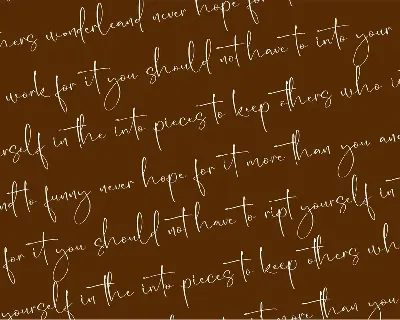 hers wonderleand never hope for
work for it you should not have to into your
rself in the into pieces to keep others who i
nd to funny never hope for it more than you are
for it you should not have to ript yourself in
yourself in the into pieces to keep others wh
it more than your